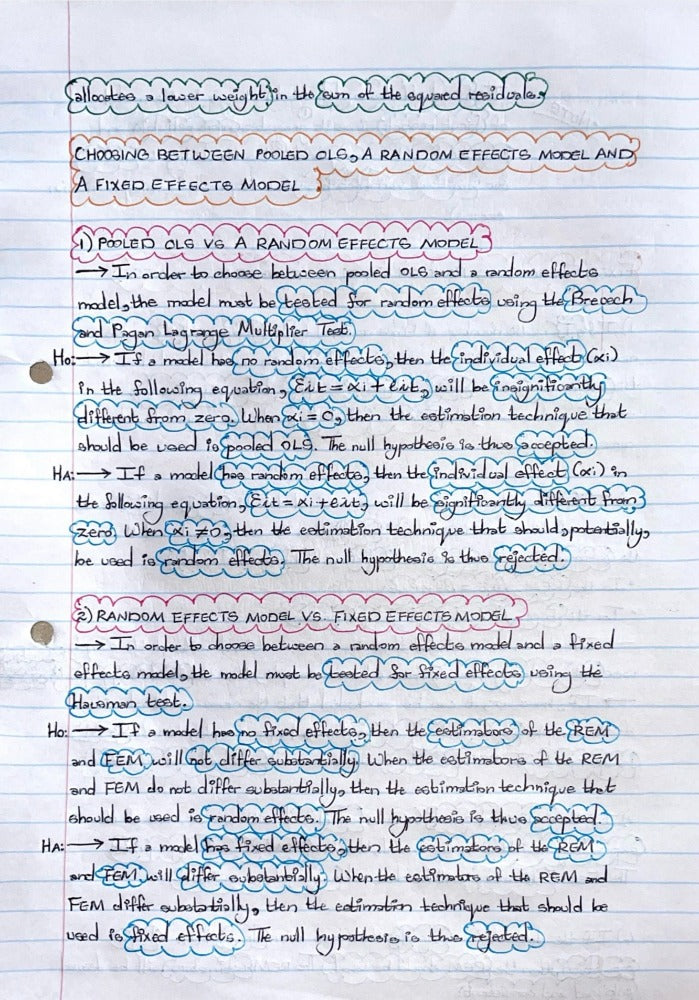 allocates a lower weight, in the sum of the squared residuals.
CHOOSING BETWEEN POOLED OLS, A RANDOM EFFECTS MODEL AND
A FIXED EFFECTS MODEL
1) POOLED OLS VS A RANDOM EFFECTS MODEL
→ In order to choose between pooled OLS and a random effects
model, the model must be tested for random effects using the Breusch
and Pagan Lagrange Multiplier Test.
H0: → If a model has no random effects, then the individual effect (αi)
in the following equation, Ɛit = αi + eit, will be insignificantly
different from zero. When αi = 0, then the estimation technique that
should be used is pooled OLS. The null hypothesis is thus accepted.
HA: → If a model has random effects, then the individual effect (αi) in
the following equation, Ɛit = αi + eit, will be significantly different from
zero. When αi ≠ 0, then the estimation technique that should, potentially,
be used is random effects. The null hypothesis is thus rejected.
2) RANDOM EFFECTS MODEL VS. FIXED EFFECTS MODEL
→ In order to choose between a random effects model and a fixed
effects model, the model must be tested for fixed effects using the
Hausman test.
H0: → If a model has no fixed effects, then the estimators of the REM
and FEM will not differ substantially. When the estimators of the REM
and FEM do not differ substantially, then the estimation technique that
should be used is random effects. The null hypothesis is thus accepted.
HA: → If a model has fixed effects, then the estimators of the REM
and FEM will differ substantially. When the estimators of the REM and
FEM differ substantially, then the estimation technique that should be
used is fixed effects. The null hypothesis is thus rejected.